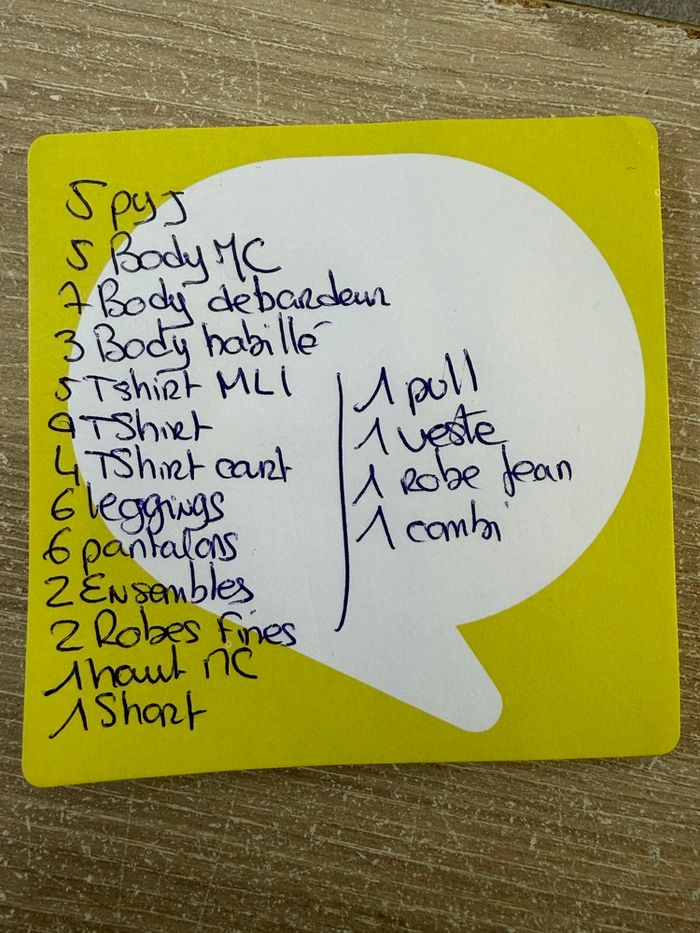 5 pyj
5 Body MC
7 Body debardeur
3 Body habillé
5 Tshirt ML
9 TShirt
4 TShirt court
6 leggings
6 pantalons
2 Ensembles
2 Robes fines
1 haut MC
1 Short
1 pull
1 veste
1 Robe Jean
1 combi